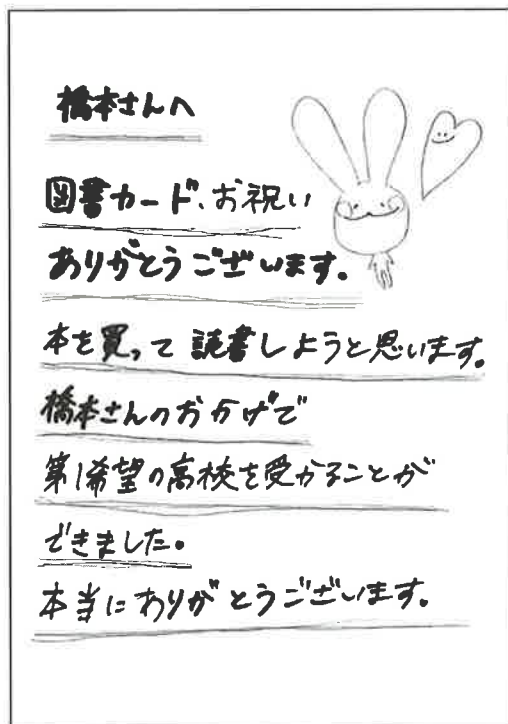 橋本さんへ
図書カード、お祝い
ありがとうございます。
本を買って読書しようと思います。
橋本さんのおかげで
第1希望の高校を受かることが
できました。
本当にありがとうございます。